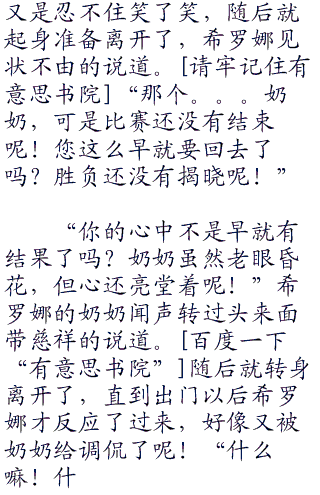 又是忍不住笑了笑，随后就
起身准备离开了，希罗娜见
状不由的说道。[请牢记住有
意思书院]“那个。。。奶
奶，可是比赛还没有结束
呢！您这么早就要回去了
吗？胜负还没有揭晓呢！”
“你的心中不是早就有
结果了吗？奶奶虽然老眼昏
花，但心还亮堂着呢！”希
罗娜的奶奶闻声转过头来面
带慈祥的说道。[百度一下
“有意思书院”]随后就转身
离开了，直到出门以后希罗
娜才反应了过来，好像又被
奶奶给调侃了呢！“什么
嘛！什